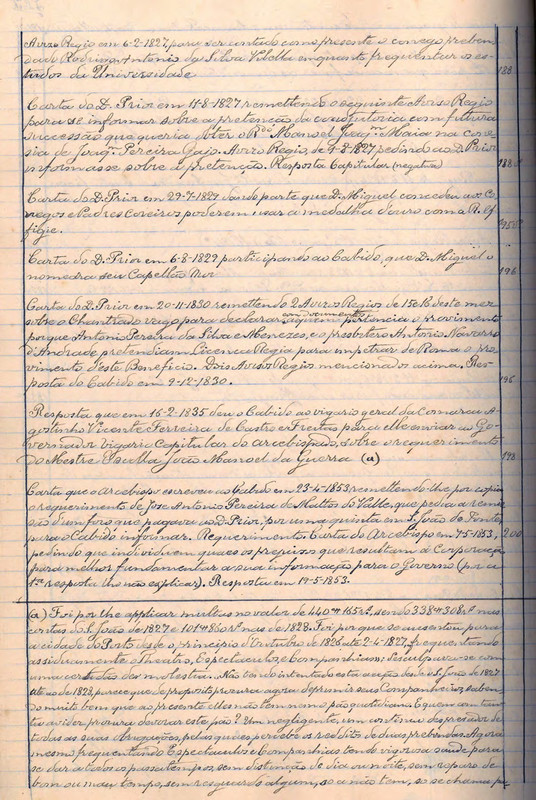 Avizo Regio em 6-2-1827, para ser contado como presente o conego preben-
dado Rodrigo Antonio da Silva Villella emquanto frequentar os es-
tudos da Universidade
188
Carta do D. Prior em 11-8-1827 remettendo o seguinte Aviso Regio
para se informar sobre a pretenção da coadjutoria com futura
successão que queria obter o Rdo Manoel Joaqm Maia na cone-
sia de Pereira Gajo. Avizo Regio, de 4-8-1827, pedindo ao D. Prior
informasse sobre a pretenção. Resposta Capitular (negativa)
188
Carta do D. Prior em 29-7-1829 dando parte que D. Miguel concedeu aos Co-
negos e Padres Coreiros poderem usar a medalha d'ouro com a R. Ef-
figie.
195
Carta do D. Prior em 6-8-1829 participando ao Cabido, que D. Miguel o
nomeára seu Capellão Mor
196
Carta do D. Prior em 20-11-1830 remettendo 2 Avizos Regios de 15 e 16 deste mez
sobre o Chantrado vago para declarar com documentos a quem pertencia o provimento
porque Antonio Pereira da Silva e Menezes, e o presbitero Antonio Navarro
d'Andrade pretendiam Licença Regia para impetrar de Roma o pro-
vimento d'este Beneficio. Dois Avisos Regios mencionados acima. Res-
posta do Cabido em 9-12-1830.
196
Resposta que em 16-2-1835 deu o Cabido ao vigario geral da Comarca A-
gostinho Vicente Ferreira de Castro e Freitas para elle enviar ao Go-
vernador vigario Capitular do arcebispado, sobre o requerimento
do Mestre Escolha João Manoel da Guerra (a)
198
Carta que o arcebispo escreveu ao Cabido em 23-4-1853 remettendo-lhe por copia
o requerimento de Jose Antonio Pereira de Mattos do Valle, que pedia a remis-
são d'um foro que pagava ao D. Prior, por uma quinta em S. João de Ponte,
para o Cabido informar. Requerimento. Carta do Arcebispo em 9-5-1853,
pedindo que individuem quaes os prejuizos que resultam á Corporação
para melhor fundamentar a sua informação para o Governo (por a
1ra resposta lho não explicar). Resposta em 19-5-1853.
200
(a) Foi por lhe applicar multas no valor de 440#165rs. sendo 338#308rs nas
certas do S. João de 1827 e 101#850rs nas de 1828. Foi por que se ausentou para
a cidade do Porto desde o principio d'outubro de 1826 até 2-4-1827, frequentando
assiduamente o Theatro, Espectaculos, e Companhias; desculpara-se com
uma certidão de molestia. Não tendo intentado esta acção desde S. João de 1827
até ao de 1828, parece que de proposito procura agora deprimir seus Companheiros, saben-
do muito bem que ao presente elles não tem nem o pão quotidiano. E quem com tan-
ta avidez procura devorar este pão? Um negligente, um continuo despresador de
todas as suas obrigações, pelas quaes percebe os reditos de duas prebendas. Agora
mesmo frequentando Espectaculos e Companhias tendo vigorosa saude para
se dar a todos os passatempos, sem distinção de dia ou noite, sem reparo de
bom ou mau tempo, sem resguardo algum, só a não tem, só se chama